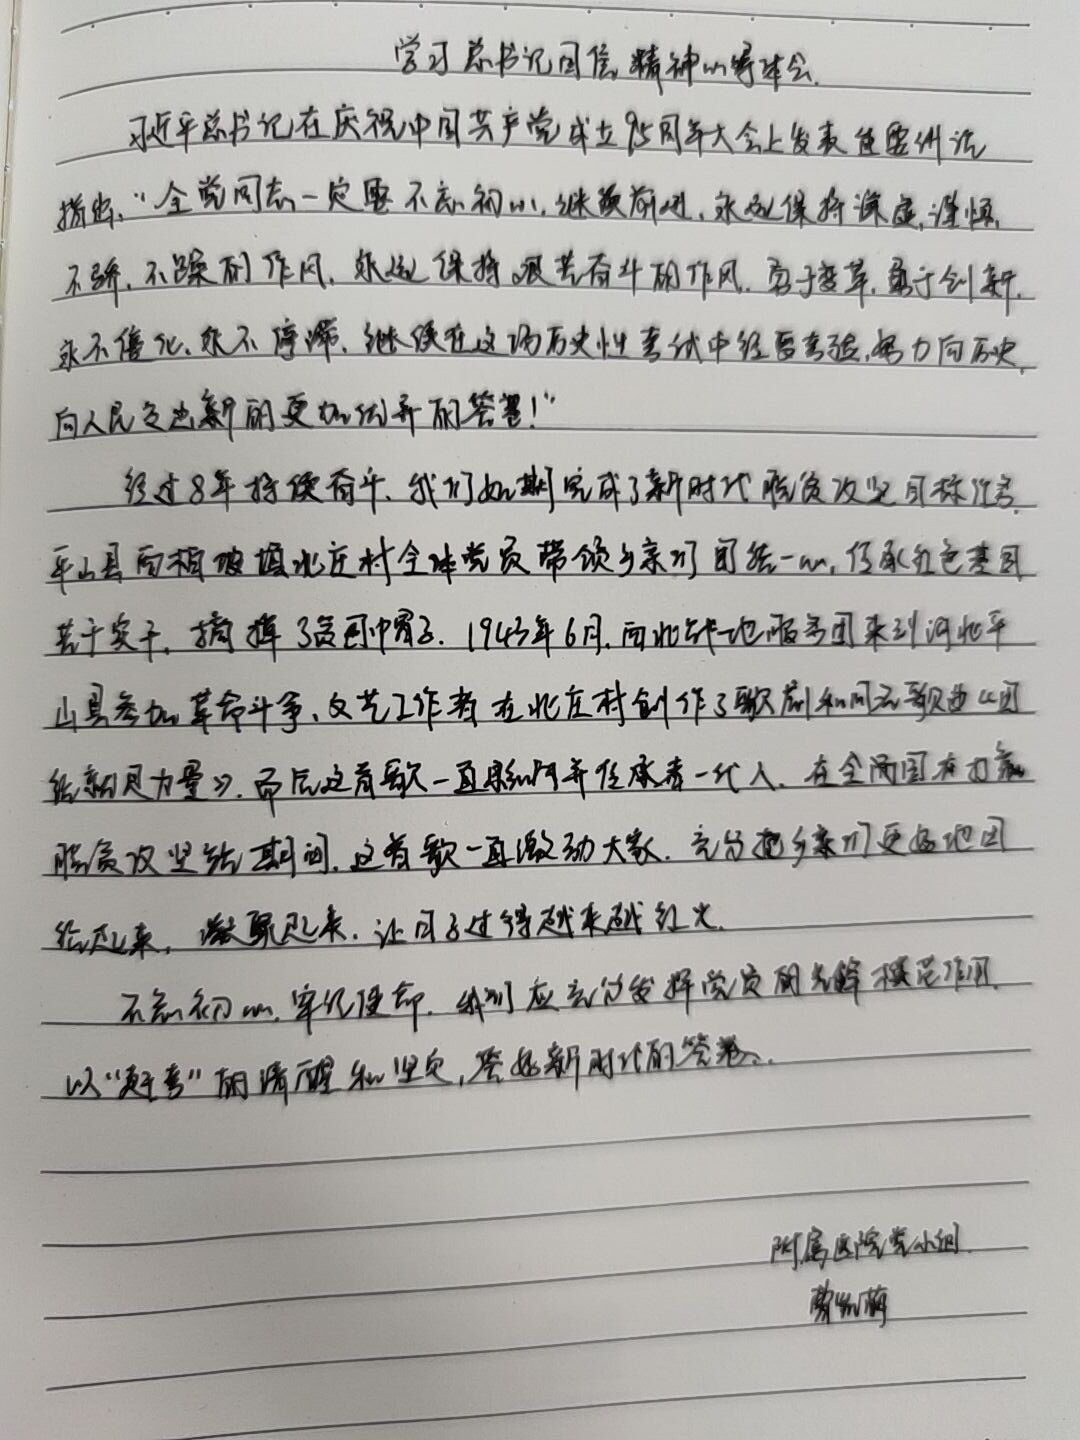 学习总书记回信精神心得体会
习近平总书记在庆祝中国共产党成立95周年大会上发表重要讲话
指出，“全党同志一定要不忘初心，继续前进，永远保持谦虚，谨慎，
不骄，不躁的作风，永远保持艰苦奋斗的作风，勇于变革，勇于创新，
永不僵化，永不停滞，继续在这场历史性考试中经受考验，努力向历史，
向人民交出新的更加优异的答卷！”
经过8年持续奋斗，我们如期完成了新时代脱贫攻坚目标任务，
平山县西柏坡镇北庄村全体党员带领乡亲们团结一心，传承红色基因
苦干实干，摘掉了贫困帽子。1943年6月，西北战地服务团来到河北平
山县参加革命斗争，文艺工作者在北庄村创作了歌剧和同名歌曲《团
结就是力量》，而后这首歌一直影响并传承着一代人，在全两国在打赢
脱贫攻坚战期间，这首歌一直激励大家，充分把乡亲们更好地团
结起来，凝聚起来，让日子过得越来越红火。
不忘初心，牢记使命，我们应充分发挥党员的先锋模范作用，
以“赶考”的清醒和坚定，答好新时代的答卷。
附属医院党小组